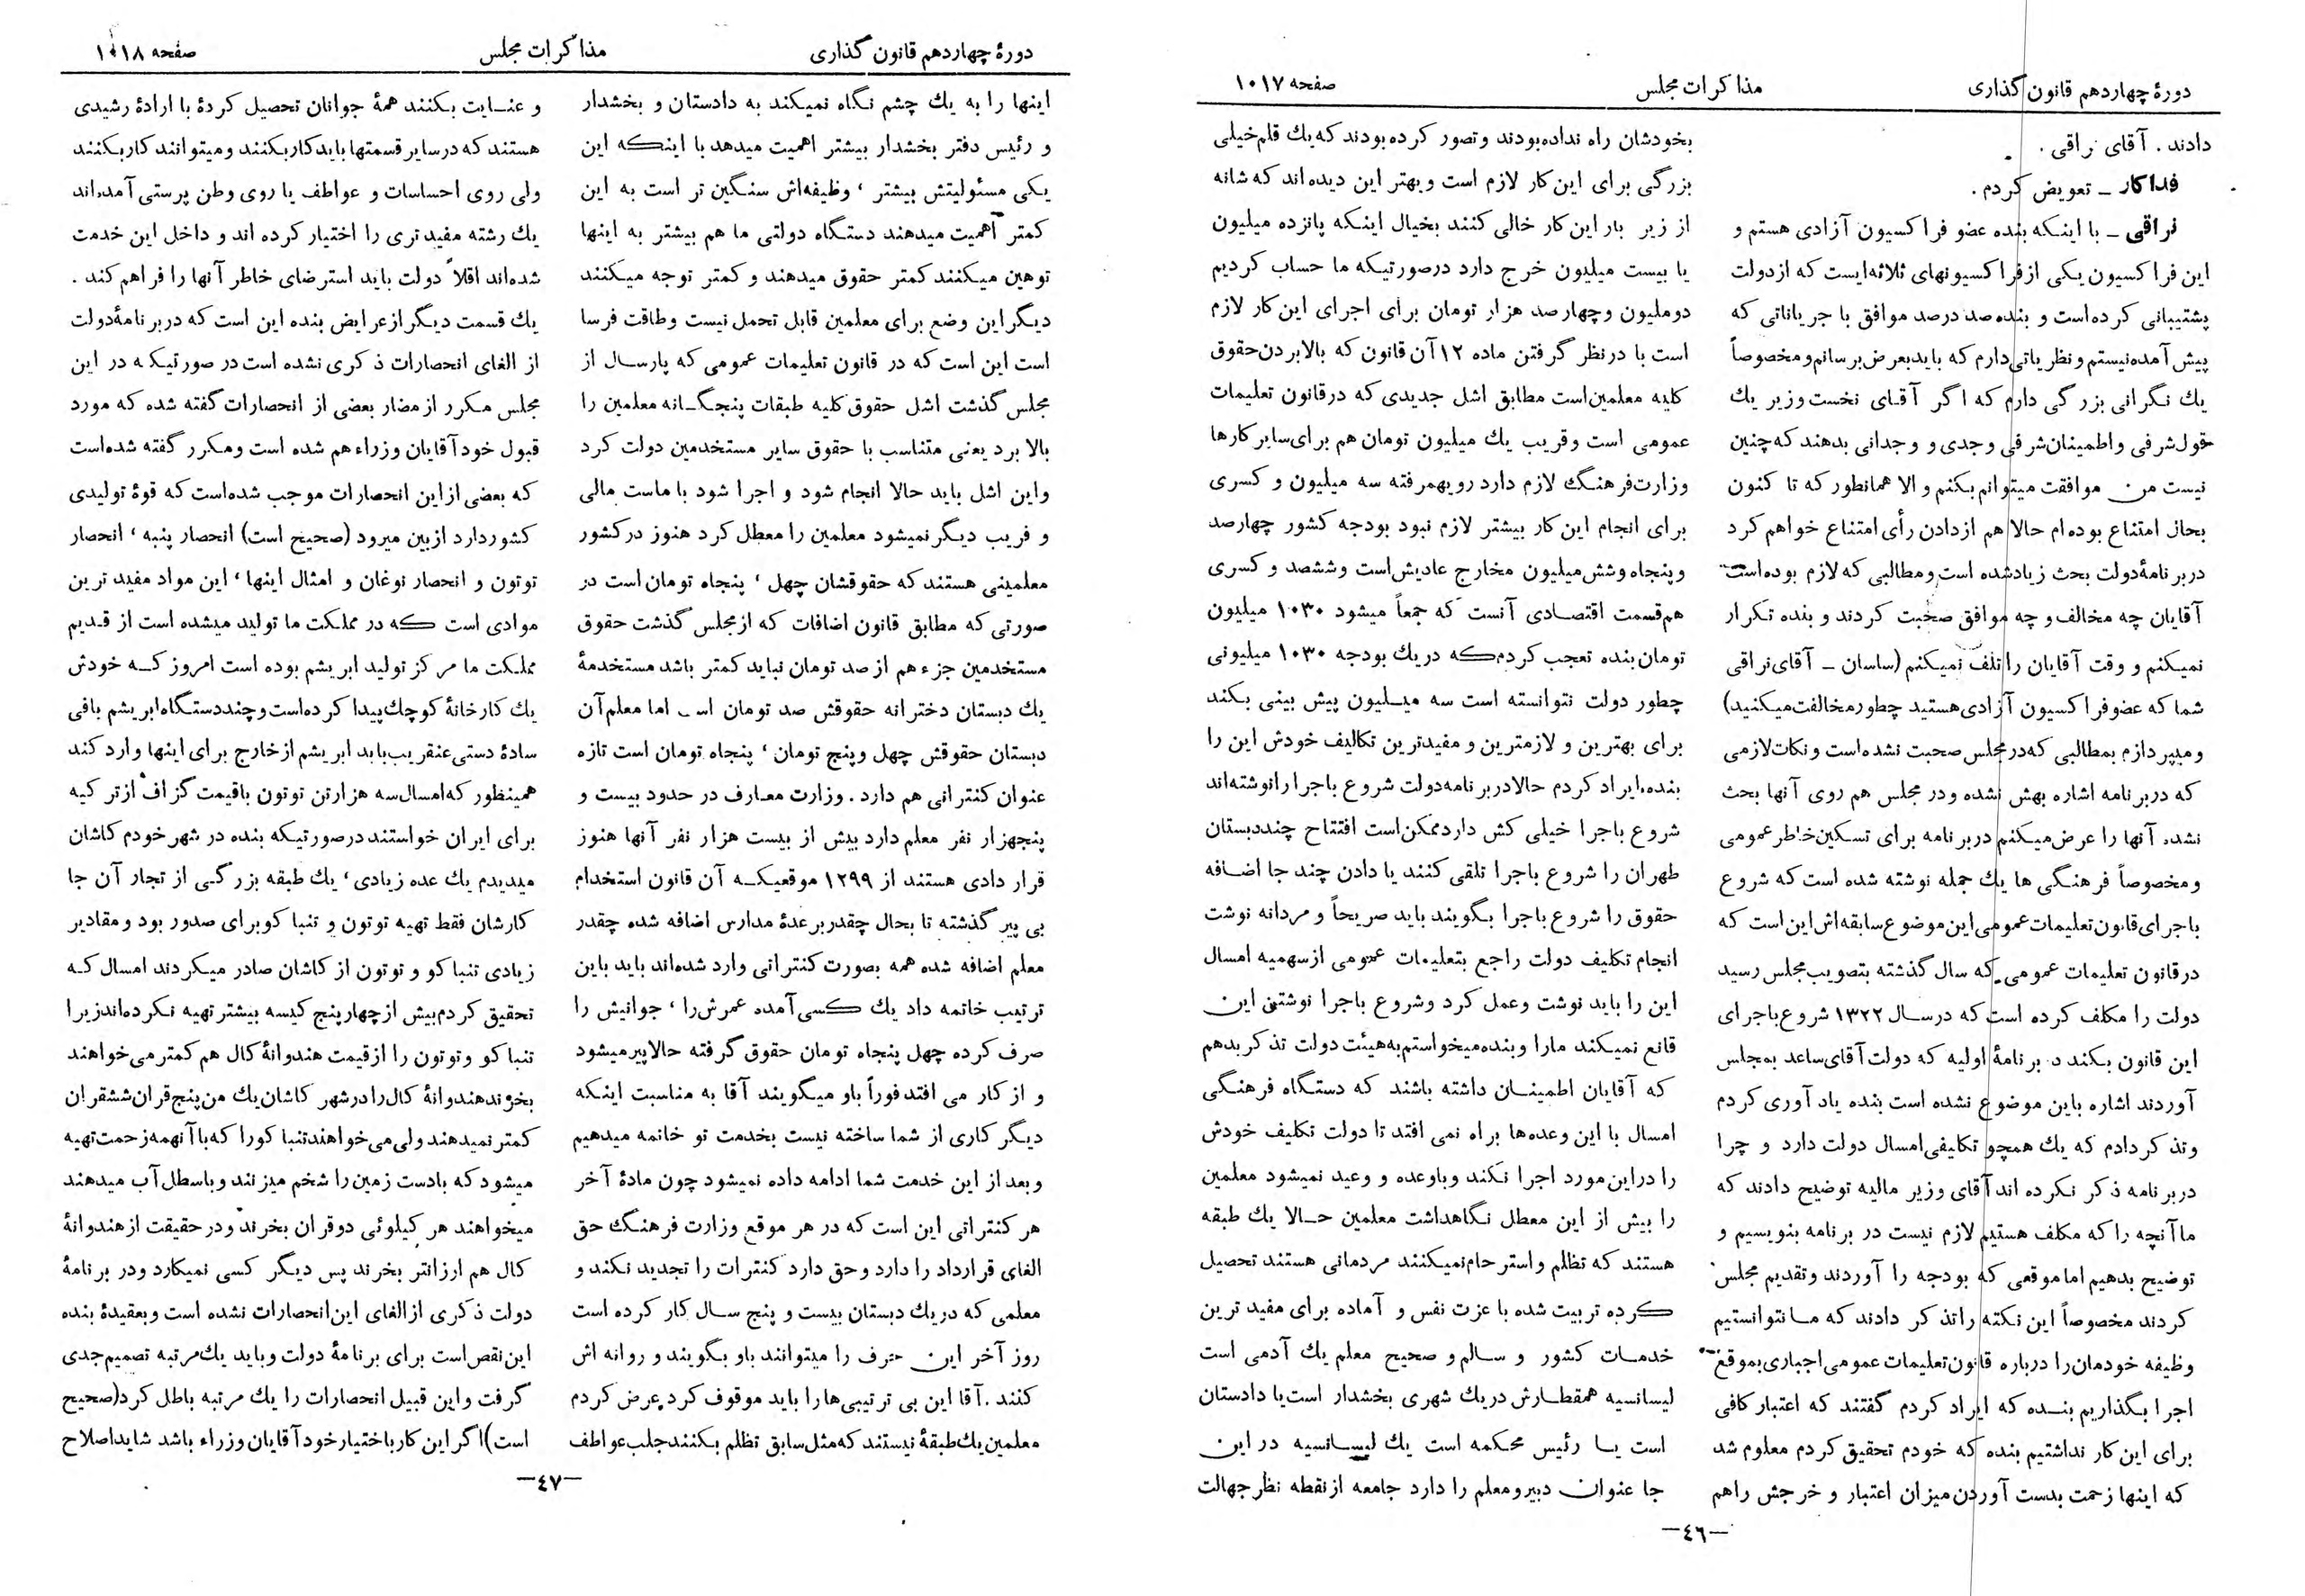 دورهٔ چهاردهم قانون گذاری
مذاکرات مجلس
صفحه ۱۰۱۷
دادند . آقای نراقی .
فداکار ــ تعویض کردم .
نراقی ــ با اینکه بنده عضو فراکسیون آزادی هستم و
این فراکسیون یکی از فراکسیونهای ثلاثه‌ایست که از دولت
پشتیبانی کرده‌است و بنده صد درصد موافق با جریاناتی که
پیش آمده نیستم و نظریاتی دارم که باید بعرض برسانم و مخصوصاً
یك نگرانی بزرگی دارم که اگر آقای نخست وزیر یك
قول شرفی و اطمینان شرفی وجدی و وجدانی بدهند که چنین
نیست من موافقت میتوانم بکنم و الا همانطور که تا کنون
بحال امتناع بوده‌ام حالا هم از دادن رأی امتناع خواهم کرد
در برنامهٔ دولت بحث زیاد شده است و مطالبی که لازم بوده است
آقایان چه مخالف و چه موافق صحبت کردند و بنده تکرار
نمیکنم و وقت آقایان را تلف نمیکنم (ساسان ــ آقای نراقی
شما که عضو فراکسیون آزادی هستید چطور مخالفت میکنید)
و میپردازم بمطالبی که در مجلس صحبت نشده است و نکات لازمی
که در برنامه اشاره بهش نشده و در مجلس هم روی آنها بحث
نشده آنها را عرض میکنم در برنامه برای تسکین خاطر عمومی
و مخصوصاً فرهنگی ها یك جمله نوشته شده است که شروع
باجرای قانون تعلیمات عمومی این موضوع سابقه‌اش این است که
در قانون تعلیمات عمومی که سال گذشته بتصویب مجلس رسید
دولت را مکلف کرده است که در سال ۱۳۲۲ شروع باجرای
این قانون بکند در برنامهٔ اولیه که دولت آقای ساعد بمجلس
آوردند اشاره باین موضوع نشده است بنده یاد آوری کردم
وتذکر دادم که یك همچو تکلیفی امسال دولت دارد و چرا
در برنامه ذکر نکرده اند آقای وزیر مالیه توضیح دادند که
ما آنچه را که مکلف هستیم لازم نیست در برنامه بنویسیم و
توضیح بدهیم اما موقعی که بودجه را آوردند و تقدیم مجلس
کردند مخصوصاً این نکته را تذکر دادند که ما نتوانستیم
وظیفه خودمان را درباره قانون تعلیمات عمومی اجباری بموقع
اجرا بگذاریم بنده که ایراد کردم گفتند که اعتبار کافی
برای این کار نداشتیم بنده که خودم تحقیق کردم معلوم شد
که اینها زحمت بدست آوردن میزان اعتبار و خرجش را هم
بخودشان راه نداده بودند و تصور کرده بودند که یك قلم خیلی
بزرگی برای این کار لازم است و بهتر این دیده اند که شانه
از زیر بار این کار خالی کنند بخیال اینکه پانزده میلیون
یا بیست میلیون خرج دارد در صورتیکه ما حساب کردیم
دو ملیون و چهار صد هزار تومان برای اجرای این کار لازم
است با در نظر گرفتن ماده ۱۲ آن قانون که بالا بردن حقوق
کلیه معلمین است مطابق اشل جدیدی که در قانون تعلیمات
عمومی است و قریب یك میلیون تومان هم برای سایر کارها
وزارت فرهنگ لازم دارد رویهمرفته سه میلیون و کسری
برای انجام این کار بیشتر لازم نبود بودجه کشور چهار صد
و پنجاه و شش میلیون مخارج عادیش است و ششصد و کسری
هم قسمت اقتصادی آنست که جمعاً میشود ۱۰۳۰ میلیون
تومان بنده تعجب کردم که در یك بودجه ۱۰۳۰ میلیونی
چطور دولت نتوانسته است سه میلیون پیش بینی بکند
برای بهترین و لازمترین و مفیدترین تکالیف خودش این را
بنده ایراد کردم حالا در برنامه دولت شروع باجرا را نوشته‌اند
شروع باجرا خیلی کش دارد ممکن است افتتاح چند دبستان
طهران را شروع باجرا تلقی کنند یا دادن چند جا اضافه
حقوق را شروع باجرا بگویند باید صریحاً و مردانه نوشت
انجام تکلیف دولت راجع بتعلیمات عمومی از سهمیه امسال
این را باید نوشت و عمل کرد و شروع باجرا نوشتن این
قانع نمیکند مارا و بنده میخواستم به هیئت دولت تذکر بدهم
که آقایان اطمینان داشته باشند که دستگاه فرهنگی
امسال با این وعده‌ها براه نمی افتد تا دولت تکلیف خودش
را در این مورد اجرا نکند و با وعده و وعید نمیشود معلمین
را بیش از این معطل نگاهداشت معلمین حالا یك طبقه
هستند که تظلم و استرحام نمیکنند مردمانی هستند تحصیل
کرده تربیت شده با عزت نفس و آماده برای مفید ترین
خدمات کشور و سالم و صحیح معلم یك آدمی است
لیسانسیه همقطارش در یك شهری بخشدار است یا دادستان
است یا رئیس محکمه است یك لیسانسیه در این
جا عنوان دبیر و معلم را دارد جامعه از نقطه نظر جهالت
ــ٤٦ــ
دورهٔ چهاردهم قانون گذاری
مذاکرات مجلس
صفحه ۱۰۱۸
اینها را به یك چشم نگاه نمیکند به دادستان و بخشدار
و رئیس دفتر بخشدار بیشتر اهمیت میدهد با اینکه این
یکی مسئولیتش بیشتر ، وظیفه‌اش سنگین تر است به این
کمتر اهمیت میدهند دستگاه دولتی ما هم بیشتر به اینها
توهین میکنند کمتر حقوق میدهند و کمتر توجه میکنند
دیگر این وضع برای معلمین قابل تحمل نیست و طاقت فرسا
است این است که در قانون تعلیمات عمومی که پارسال از
مجلس گذشت اشل حقوق کلیه طبقات پنجگانه معلمین را
بالا برد یعنی متناسب با حقوق سایر مستخدمین دولت کرد
و این اشل باید حالا انجام شود و اجرا شود با ماست مالی
و فریب دیگر نمیشود معلمین را معطل کرد هنوز در کشور
معلمینی هستند که حقوقشان چهل ، پنجاه تومان است در
صورتی که مطابق قانون اضافات که از مجلس گذشت حقوق
مستخدمین جزء هم از صد تومان نباید کمتر باشد مستخدمهٔ
یك دبستان دخترانه حقوقش صد تومان است اما معلم آن
دبستان حقوقش چهل و پنج تومان ، پنجاه تومان است تازه
عنوان کنتراتی هم دارد . وزارت معارف در حدود بیست و
پنجهزار نفر معلم دارد بیش از بیست هزار نفر آنها هنوز
قرار دادی هستند از ۱۲۹۹ موقعیکه آن قانون استخدام
بی پیر گذشته تا بحال چقدر بر عدهٔ مدارس اضافه شده چقدر
معلم اضافه شده همه بصورت کنتراتی وارد شده‌اند باید باین
ترتیب خاتمه داد یك کسی آمده عمرش را ، جوانیش را
صرف کرده چهل پنجاه تومان حقوق گرفته حالا پیر میشود
و از کار می افتد فوراً باو میگویند آقا به مناسبت اینکه
دیگر کاری از شما ساخته نیست بخدمت تو خاتمه میدهیم
و بعد از این خدمت شما ادامه داده نمیشود چون مادهٔ آخر
هر کنتراتی این است که در هر موقع وزارت فرهنگ حق
الغای قرارداد را دارد و حق دارد کنترات را تجدید نکند و
معلمی که در یك دبستان بیست و پنج سال کار کرده است
روز آخر این حرف را میتوانند باو بگویند و روانه اش
کنند . آقا این بی ترتیبی ها را باید موقوف کرد عرض کردم
معلمین یك طبقهٔ نیستند که مثل سابق تظلم بکنند جلب عواطف
و عنایت بکنند همهٔ جوانان تحصیل کردهٔ با ارادهٔ رشیدی
هستند که در سایر قسمتها باید کار بکنند و میتوانند کار بکنند
ولی روی احساسات و عواطف یا روی وطن پرستی آمده‌اند
یك رشته مفید تری را اختیار کرده اند و داخل این خدمت
شده‌اند اقلاً دولت باید استرضای خاطر آنها را فراهم کند .
یك قسمت دیگر از عرایض بنده این است که در برنامهٔ دولت
از الغای انحصارات ذکری نشده است در صورتیکه در این
مجلس مکرر از مضار بعضی از انحصارات گفته شده که مورد
قبول خود آقایان وزراء هم شده است و مکرر گفته شده‌است
که بعضی از این انحصارات موجب شده‌است که قوهٔ تولیدی
کشور دارد از بین میرود (صحیح است) انحصار پنبه ، انحصار
توتون و انحصار نوغان و امثال اینها ، این مواد مفید ترین
موادی است که در مملکت ما تولید میشده است از قدیم
مملکت ما مرکز تولید ابریشم بوده است امروز که خودش
یك کارخانهٔ کوچك پیدا کرده‌است و چند دستگاه ابریشم بافی
سادهٔ دستی عنقریب باید ابریشم از خارج برای اینها وارد کند
همینطور که امسال سه هزار تن توتون باقیمت گزاف از ترکیه
برای ایران خواستند در صورتیکه بنده در شهر خودم کاشان
میدیدم یك عده زیادی ، یك طبقه بزرگی از تجار آن جا
کارشان فقط تهیه توتون و تنباکو برای صدور بود و مقادیر
زیادی تنباکو و توتون از کاشان صادر میکردند امسال که
تحقیق کردم بیش از چهار پنج کیسه بیشتر تهیه نکرده‌اند زیرا
تنباکو و توتون را از قیمت هندوانهٔ کال هم کمتر می‌خواهند
بخرند هندوانهٔ کال را در شهر کاشان یك من پنج قران ششقران
کمتر نمیدهند ولی می خواهند تنباکو را که با آنهمه زحمت تهیه
میشود که با دست زمین را شخم میزنند و با سطل آب میدهند
میخواهند هر کیلوئی دو قران بخرند و در حقیقت از هندوانهٔ
کال هم ارزانتر بخرند پس دیگر کسی نمیکارد و در برنامهٔ
دولت ذکری از الغای این انحصارات نشده است و بعقیدهٔ بنده
این نقص است برای برنامهٔ دولت و باید یك مرتبه تصمیم جدی
گرفت و این قبیل انحصارات را یك مرتبه باطل کرد (صحیح
است) اگر این کار باختیار خود آقایان وزراء باشد شاید اصلاح
ــ٤٧ــ